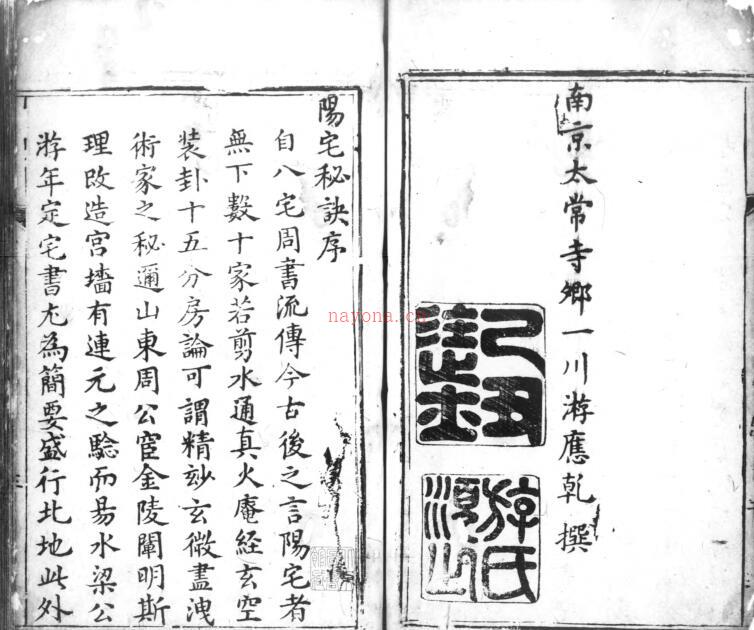 南京太常寺鄉一川游應乾撰
游氏
陽宅秘訣序
自八宅周書流傳今古後之言陽宅者
無下數十家若剪水通真火庵経玄空
装卦十五分房論可謂精玅玄微盡洩
術家之秘邇山東周公宦金陵闡明斯
理改造宫墻有連元之騐而易水梁公
游年定宅書尤為簡要盛行北地此外
nayona.cn